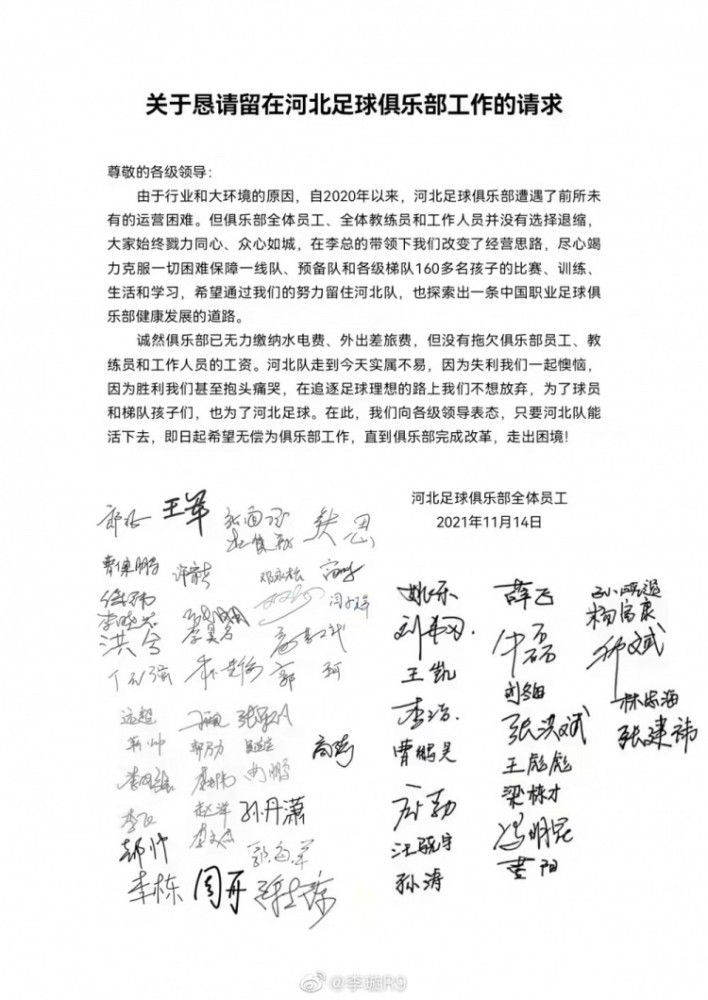 关于恳请留在河北足球俱乐部工作的请求
尊敬的各级领导：
由于行业和大环境的原因，自2020年以来，河北足球俱乐部遭遇了前所未
有的运营困难。但俱乐部全体员工、全体教练员和工作人员并没有选择退缩，
大家始终戮力同心、众心如城，在李总的带领下我们改变了经营思路，尽心竭
力克服一切困难保障一线队、预备队和各级梯队160多名孩子的比赛、训练、
生活和学习，希望通过我们的努力留住河北队，也探索出一条中国职业足球俱
乐部健康发展的道路。
诚然俱乐部已无力缴纳水电费、外出差旅费，但没有拖欠俱乐部员工、教
练员和工作人员的工资。河北队走到今天实属不易，因为失利我们一起懊恼，
因为胜利我们甚至抱头痛哭，在追逐足球理想的路上我们不想放弃，为了球员
和梯队孩子们，也为了河北足球。在此，我们向各级领导表态，只要河北队能
活下去，即日起希望无偿为俱乐部工作，直到俱乐部完成改革，走出困境！
河北足球俱乐部全体员工
2021年11月14日
王军
曹保鹏
李晓芯
洪兮
郭 珂
高奇
孙丹潇
郝帅
李栋 周开
姚乐
王凯
李浩
曹鹏昊
汪骁宇
孙涛
薛飞
牛磊
张洪斌
王彪彪
梁栋才
冯明昆
董阳
杨富康
林忠海
张建祎
@李璇R9